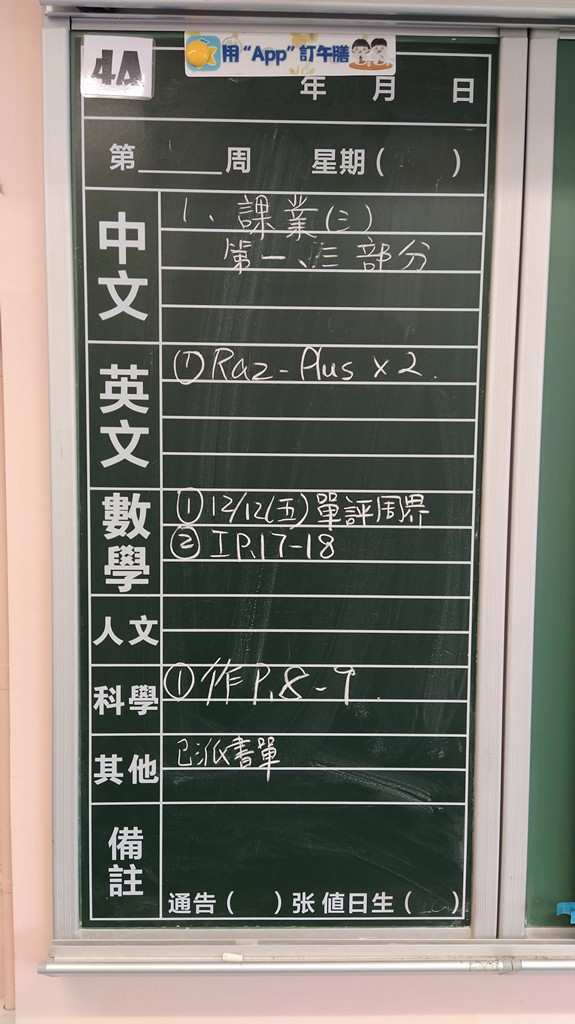 4A
用“App”訂午膳
年 月 日
第______周 星期( )
中文
1、課業(三)
第一、三部分
英文
① Raz-Plus x 2.
數學
① 12/12(五)單評周界
② I P.17-18
人文
科學
① 作 P.8-9.
其他
已派書單
備註
通告( )张 值日生( )